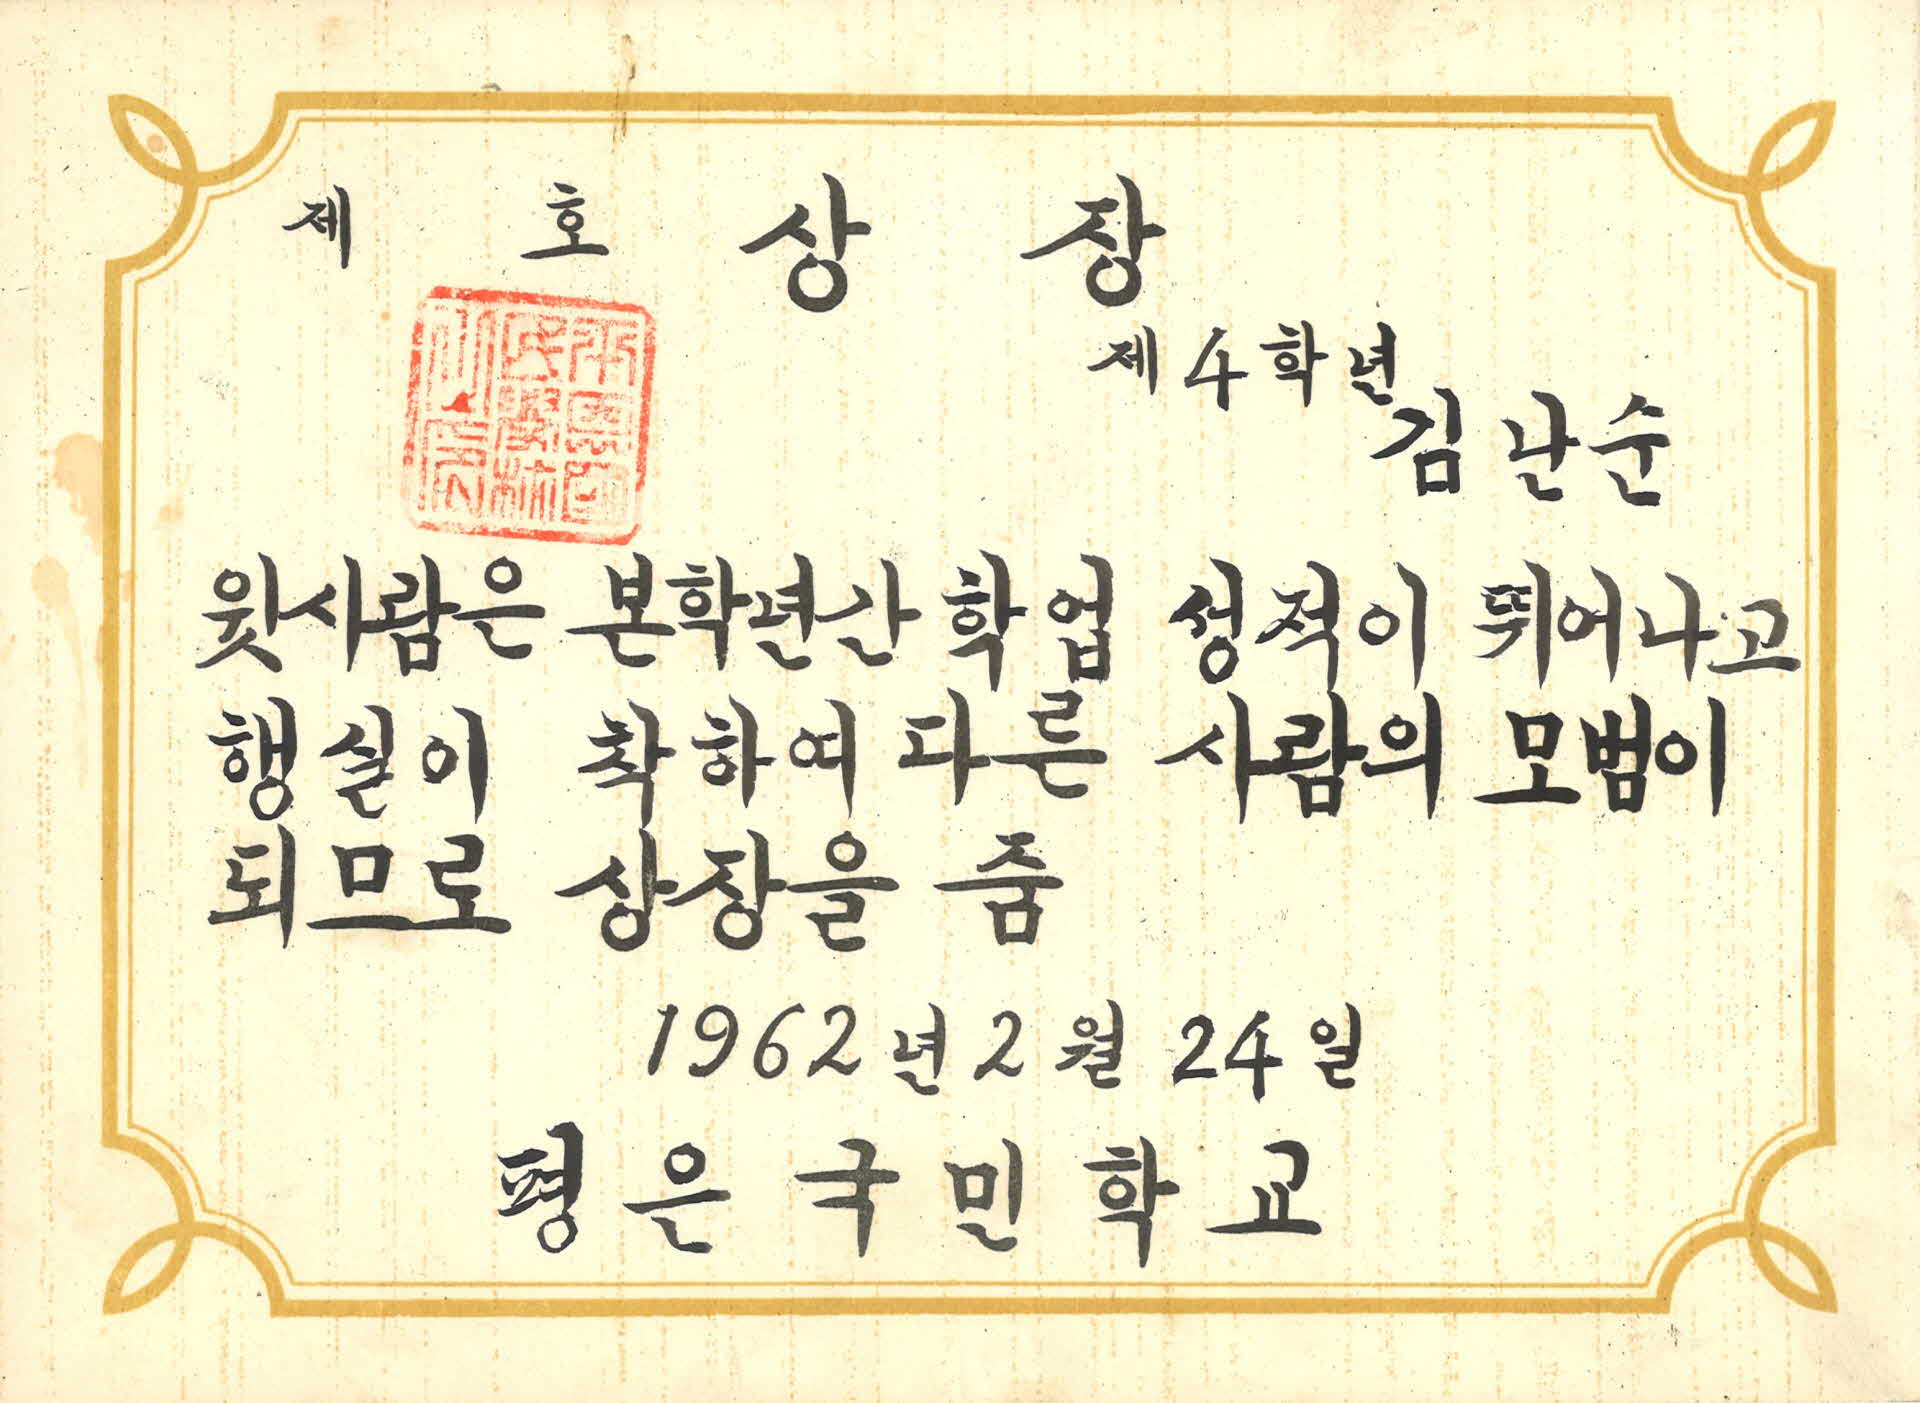 제 호 상 장
제 4 학년
김 난순
윗사람은 본학년간 학업 성적이 뛰어나고
행실이 착하여 다른 사람의 모범이
되므로 상장을 줌
1962년 2월 24일
평은국민학교